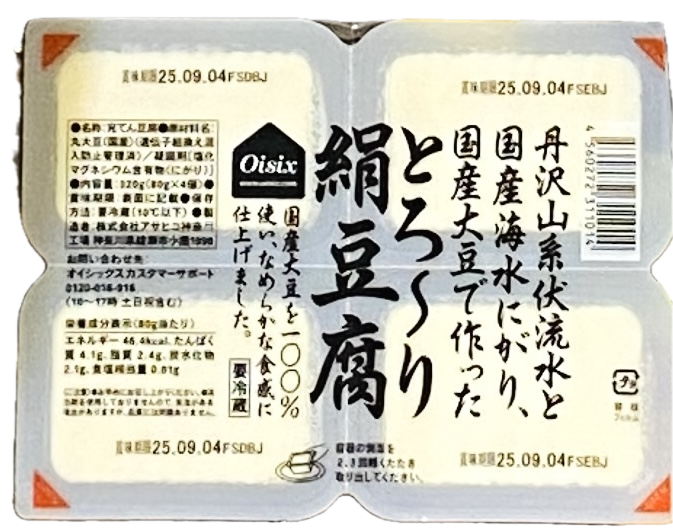 賞味期限25.09.04FSDBJ
賞味期限25.09.04FSEBJ
丹沢山系伏流水と
国産海水にがり、
国産大豆で作った
とろ〜り
絹豆腐
Oisix
国産大豆を一〇〇%
使い、なめらかな食感に
仕上げました。
要冷蔵
●名称:充てん豆腐●原材料名:
丸大豆(国産)(遺伝子組換え混
入防止管理済)/凝固剤[塩化
マグネシウム含有物(にがり)]
●内容量:320g(80g×4個)●
賞味期限:表面に記載●保存
方法:要冷蔵(10℃以下)●製
造者:株式会社アサヒコ神奈川
工場 神奈川県綾瀬市小園1090
お問い合わせ先:
オイシックスカスタマーサポート
0120-016-916
(10〜17時 土日祝含む)
栄養成分表示(80g当たり)
エネルギー 46.4kcal、たんぱく
質 4.1g、脂質 2.4g、炭水化物
2.1g、食塩相当量 0.01g
4560272311014
容器の側面を
2、3回軽くたたき
取り出してください。
プラ
フィルム
賞味期限25.09.04FSDBJ
賞味期限25.09.04FSEBJ